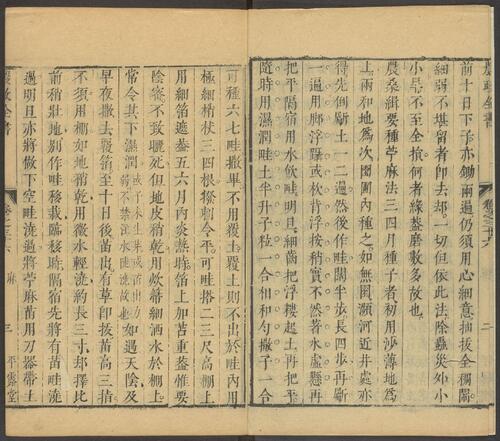 農政全書
卷之三十六
二
前十日下子亦鋤兩遍仍須用心細意抽拔全稠鬧
細弱不堪留者即去却一切但依此法除蟲災外小
小旱不至全損何者緣蓋磨數多故也
農桑緝要種苧麻法三四月種子者初用沙薄地爲
上兩和地爲次園圃內種之如無園瀕河近井處亦
得先倒斸土一二遍然後作畦闊半步長四步再斸
一遍用脚浮躡或杴背浮按稍實不然著水虛懸再
把平隔宿用水飮畦明旦細齒把浮耬起土再把平
隨時用濕潤畦土半升子粒一合相和勻撒子一合
可種六七畦撒畢不用覆土覆土則不出於畦內用
極細梢杖三四根撥剌令平可畦搭二三尺高棚上
用細箔遮蓋五六月內炎熱時箔上加苫重蓋惟要
陰密不致曬死但地皮稍乾用炊幕細洒水於棚上
常令其下濕潤
遇天陰及
早夜撒去覆箔至十日後苗出有草即拔苗高三指
不須用棚如地稍乾用微水輕澆約長三寸却擇比
前稍壯地別作畦移栽臨移時隔宿先將有苗畦澆
過明旦亦將做下空畦澆過將苧麻苗用刀器帶土
農政全書
卷之三十六
麻
三
平露堂